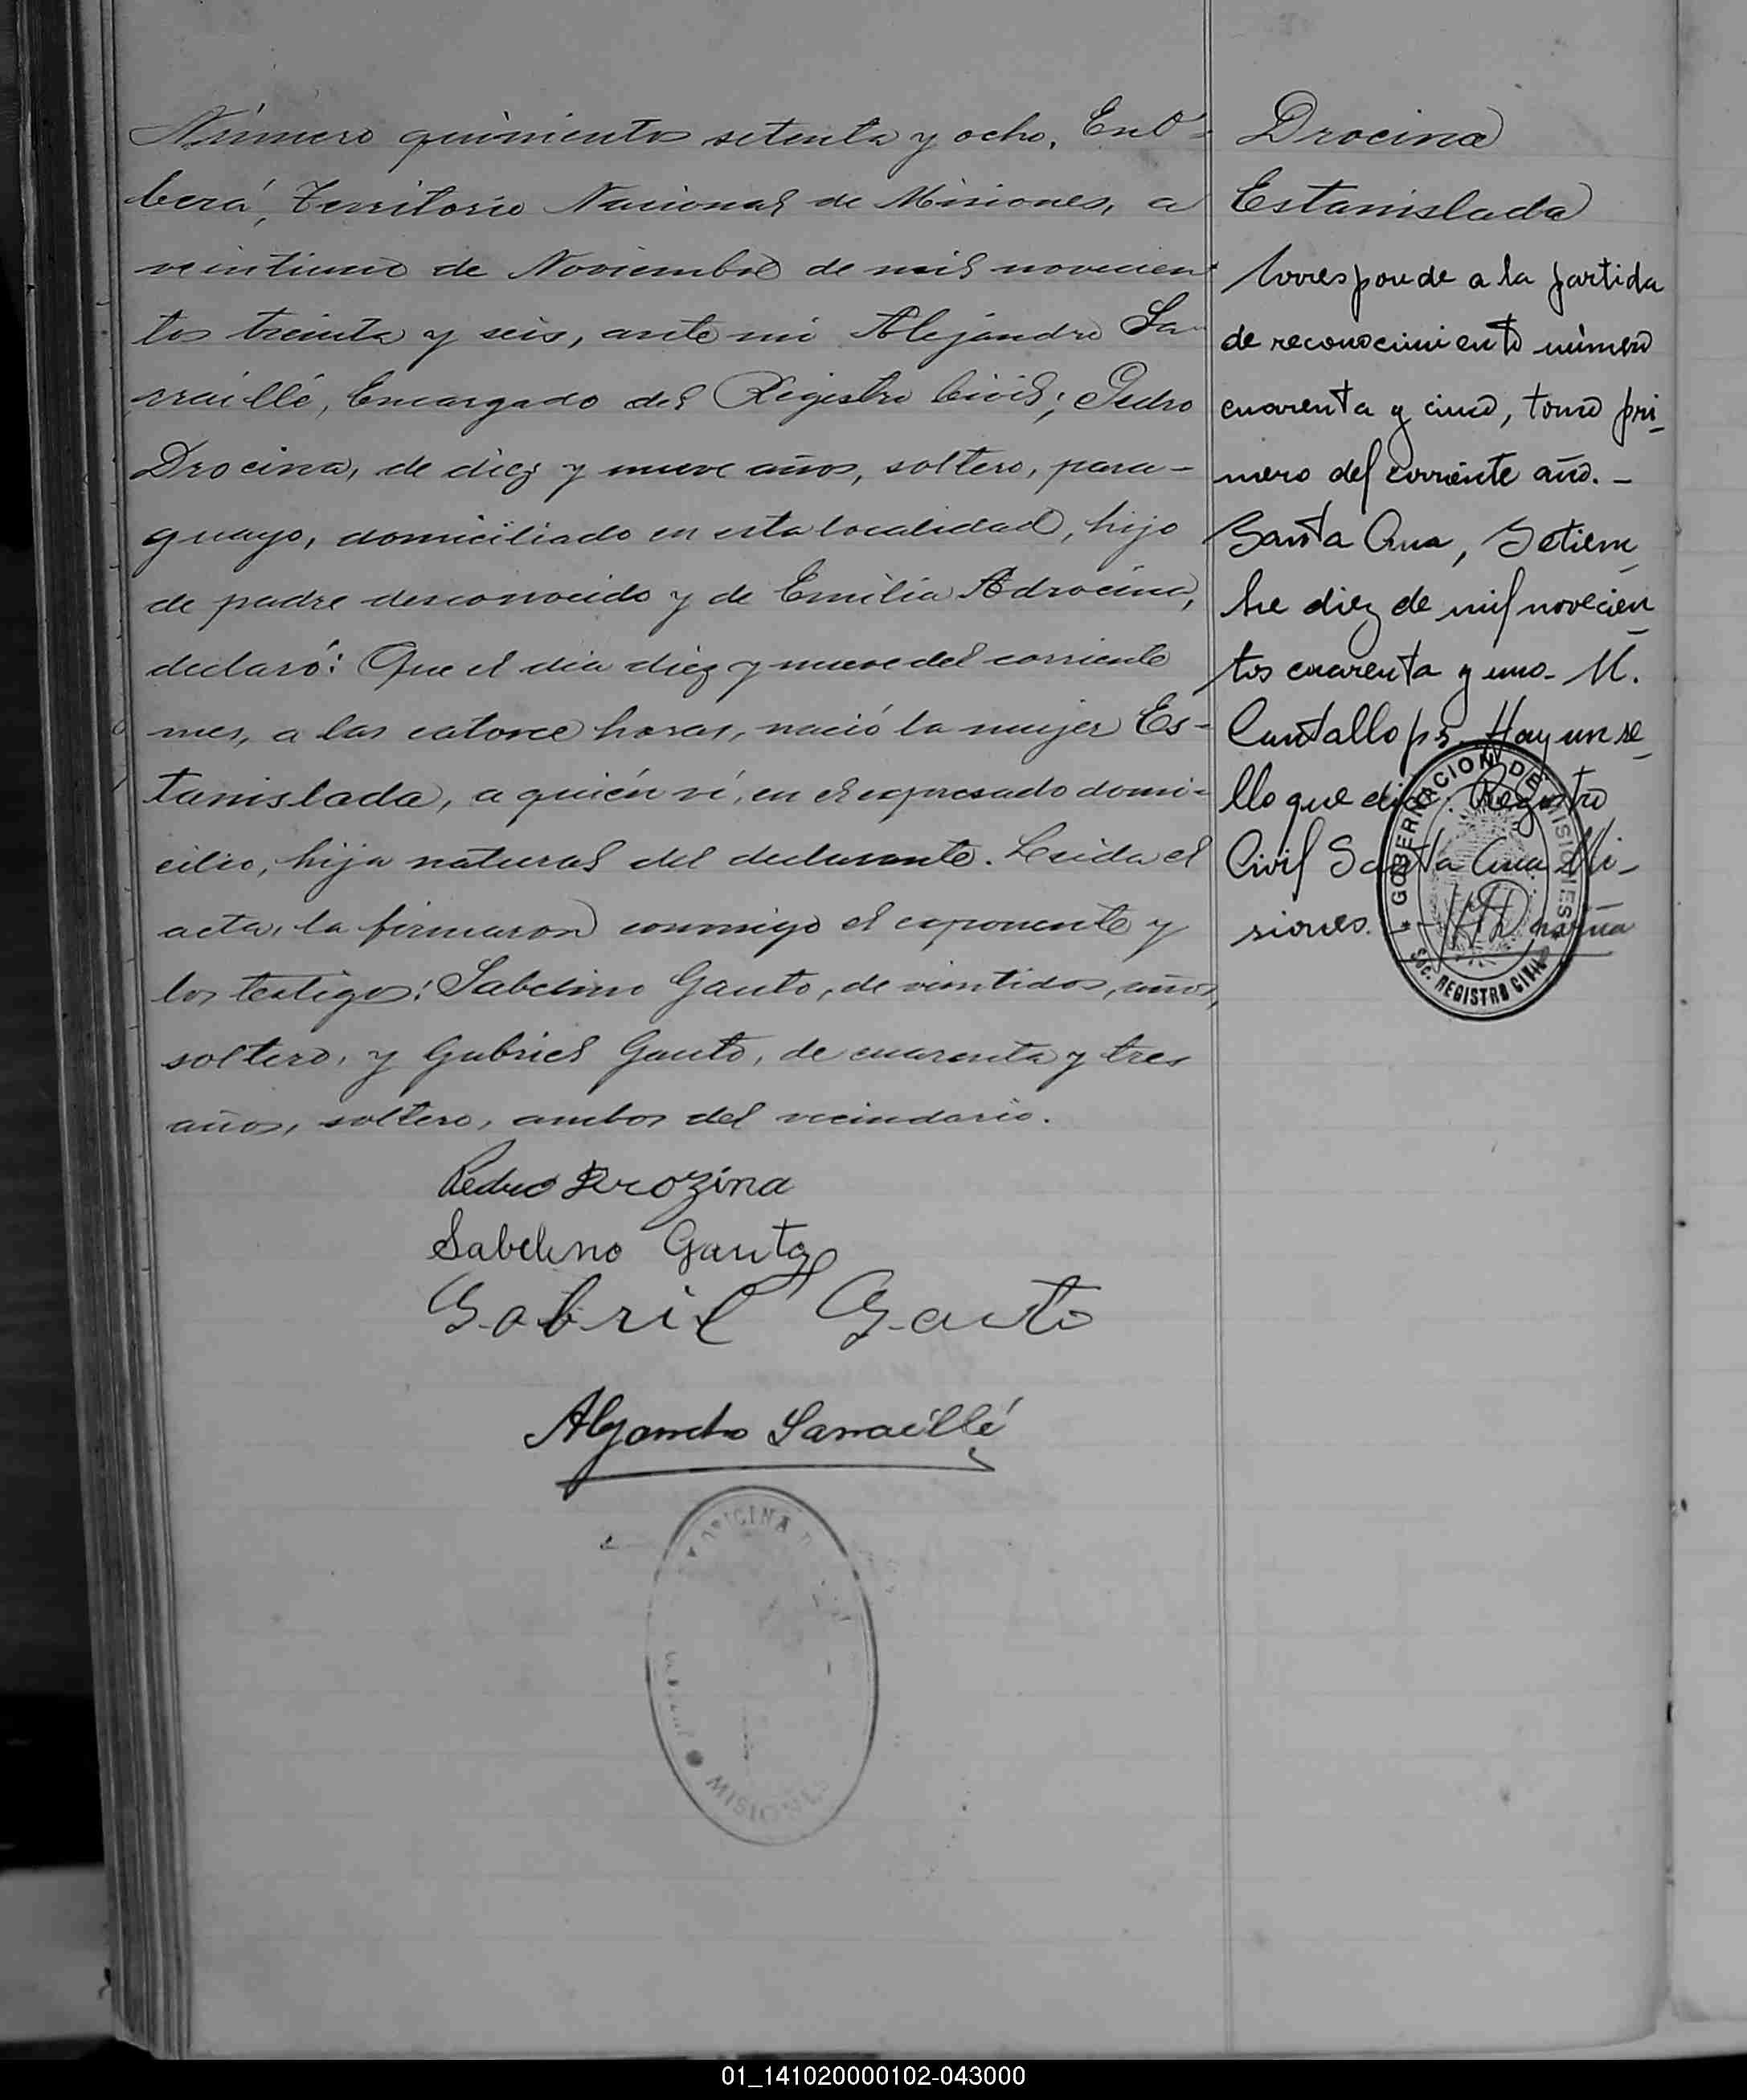 Número quinientos setenta y ocho. En O-
berá, Territorio Nacional de Misiones, a
veintiuno de Noviembre de mil novecien-
tos treinta y seis, ante mi Alejandro La-
rraillé, Encargado del Registro Civil; Pedro
Drocina, de diez y nueve años, soltero, para-
guayo, domiciliado en esta localidad, hijo
de padre desconocido y de Emilia Adrocina,
declaró: Que el dia diez y nueve del corriente
mes, a las catorce horas, nació la mujer Es-
tanislada, a quién ví, en el expresado domi-
cilio, hija natural del declarante. Leida el
acta, la firmaron conmigo el exponente y
los testigos: Sabelino Gauto, de veintidos años,
soltero, y Gabriel Gauto, de cuarenta y tres
años, soltero, ambos del vecindario.
Pedro Drozina
Sabelino Gauto
Gabril Gauto
Alejandro Larraillé
OFICINA
MISIONES
Drocina
Estanislada
Corresponde a la partida
de reconocimiento número
cuarenta y cinco, tomo pri-
mero del corriente año. -
Santa Ana, Setiem-
bre diez de mil novecien-
tos cuarenta y uno. M.
Cantallops. Hay un se-
llo que dice: Registro
Civil Santa Ana Mi-
siones.
GOBERNACION DE MISIONES
SOC. REGISTRO CIVIL
01_141020000102-043000